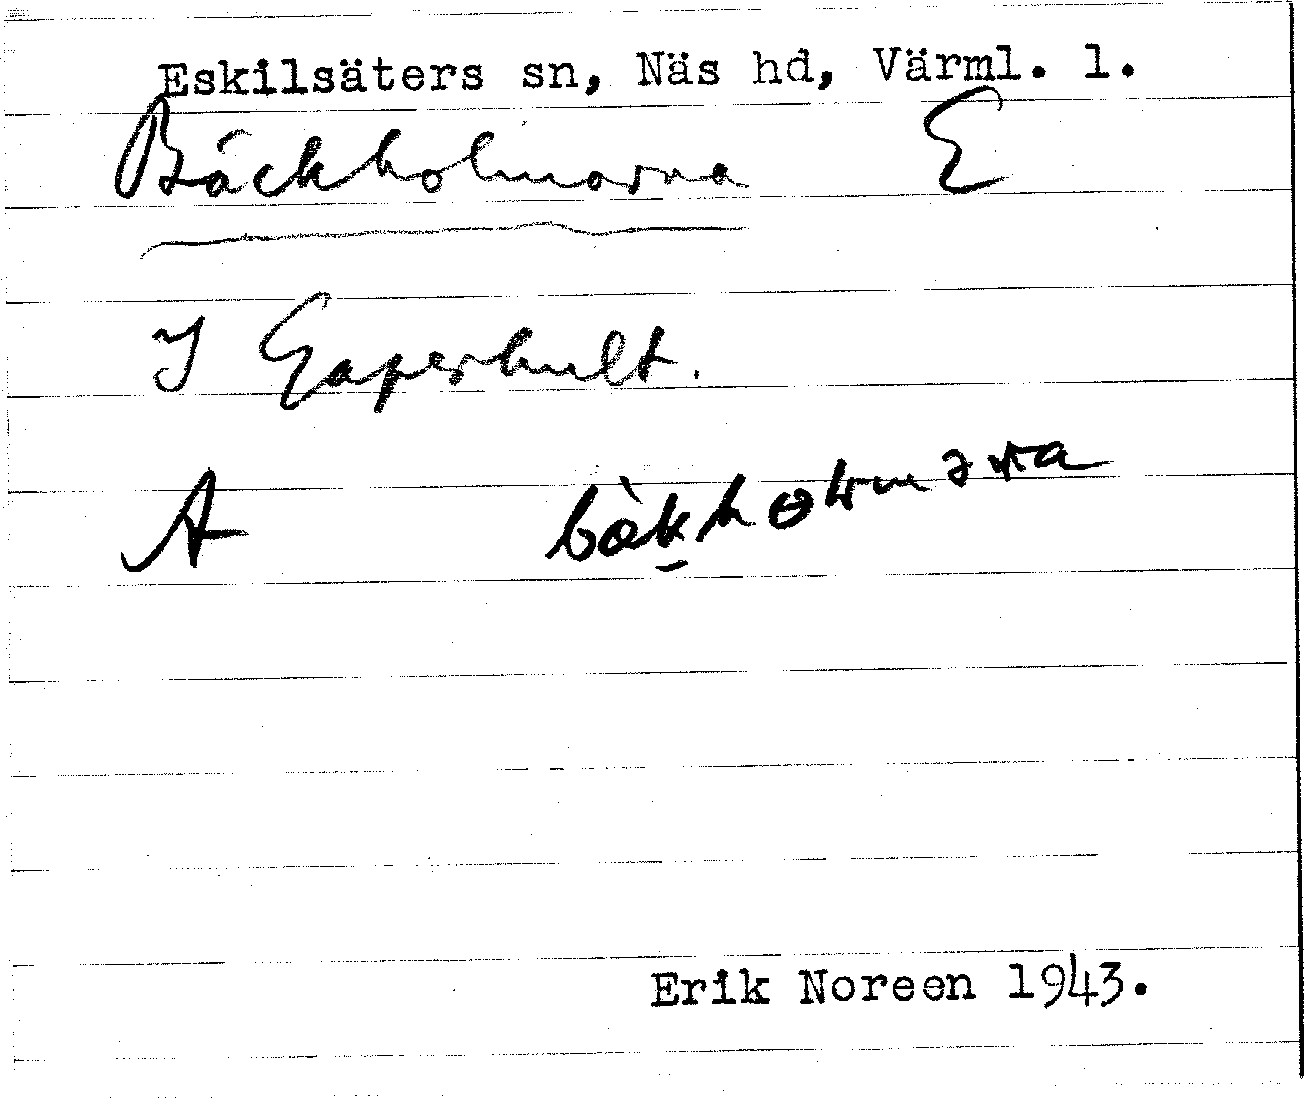 Eskilsäters sn, Näs hd, Värml. l.
Bäckholmarna E
I Gaperhult.
A
Erik Noreen 1943.